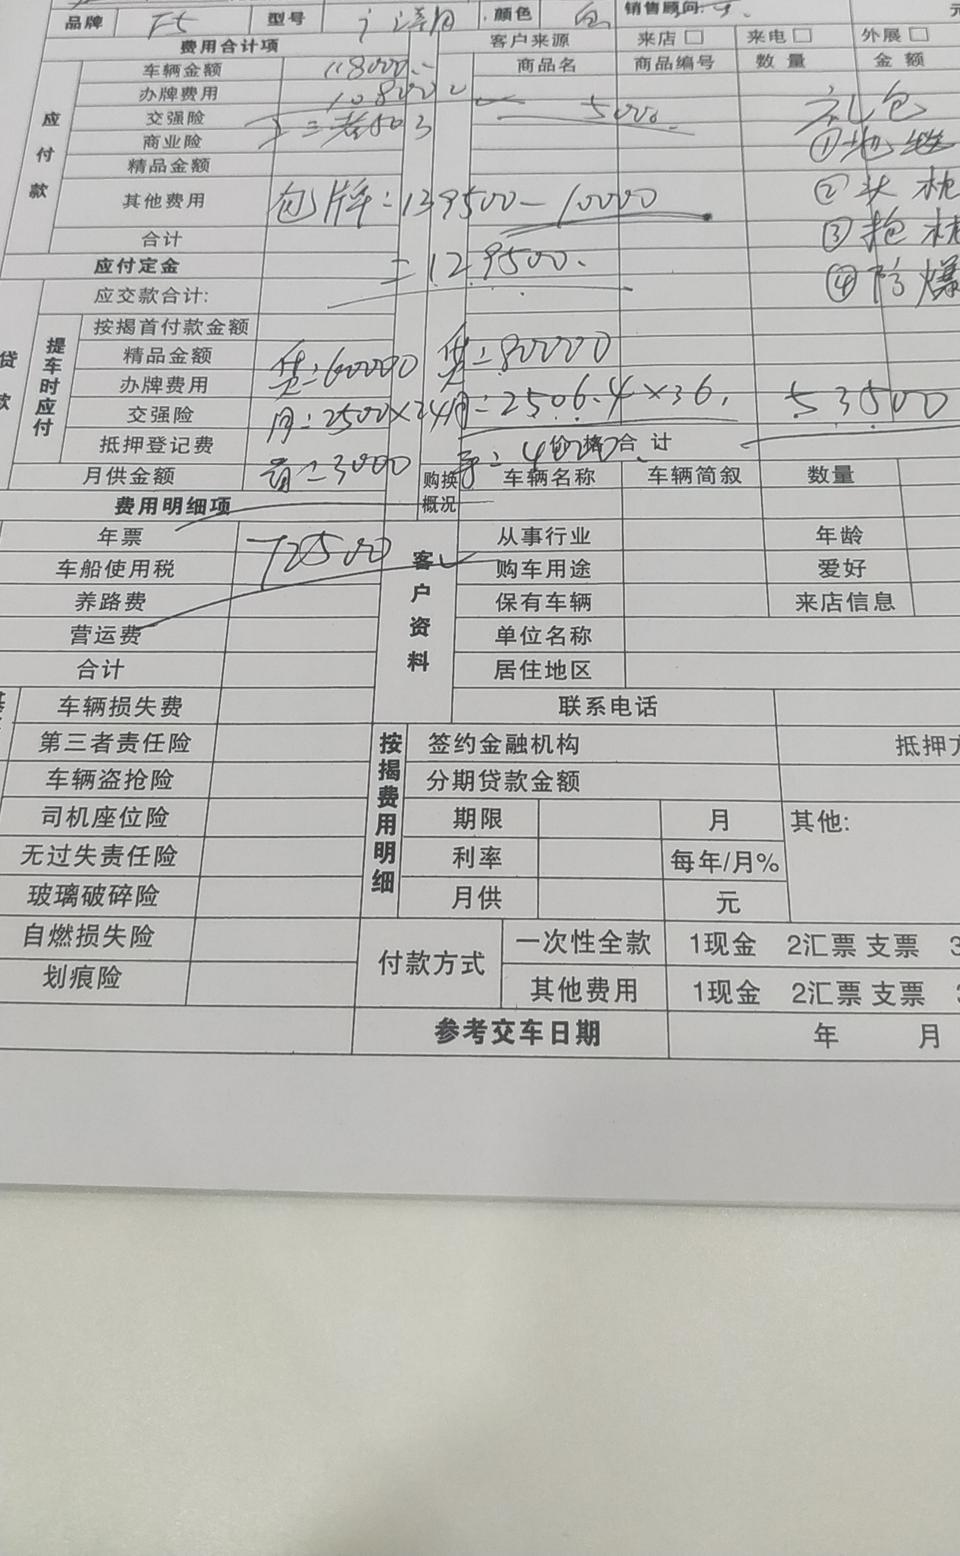 品牌 型号 颜色 销售顾问:
费用合计项 客户来源 来店 □ 来电 □ 外展 □
车辆金额 118000 商品名 商品编号 数量 金额
应付款
办牌费用 10800
交强险 5000 礼包
商业险 ①
精品金额
其他费用 包牌:139500-10000 ②头枕
③抱枕
合计
应付定金 =129500. ④防爆
应交款合计:
提车时应付
按揭首付款金额
精品金额 贷=60000 贷=80000
办牌费用
交强险 月=2500×24 月=2506.4×36. 53500
抵押登记费 合计
月供金额 首=3000 购换概况 车辆名称 车辆简叙 数量
费用明细项
年票 72500 客户资料 从事行业 年龄
车船使用税 购车用途 爱好
养路费 保有车辆 来店信息
营运费 单位名称
合计 居住地区
车辆损失费 联系电话
第三者责任险 按揭费用明细 签约金融机构 抵押方
车辆盗抢险 分期贷款金额
司机座位险 期限 月 其他:
无过失责任险 利率 每年/月%
玻璃破碎险 月供 元
自燃损失险 付款方式 一次性全款 1现金 2汇票 支票 3
划痕险 其他费用 1现金 2汇票 支票
参考交车日期 年 月